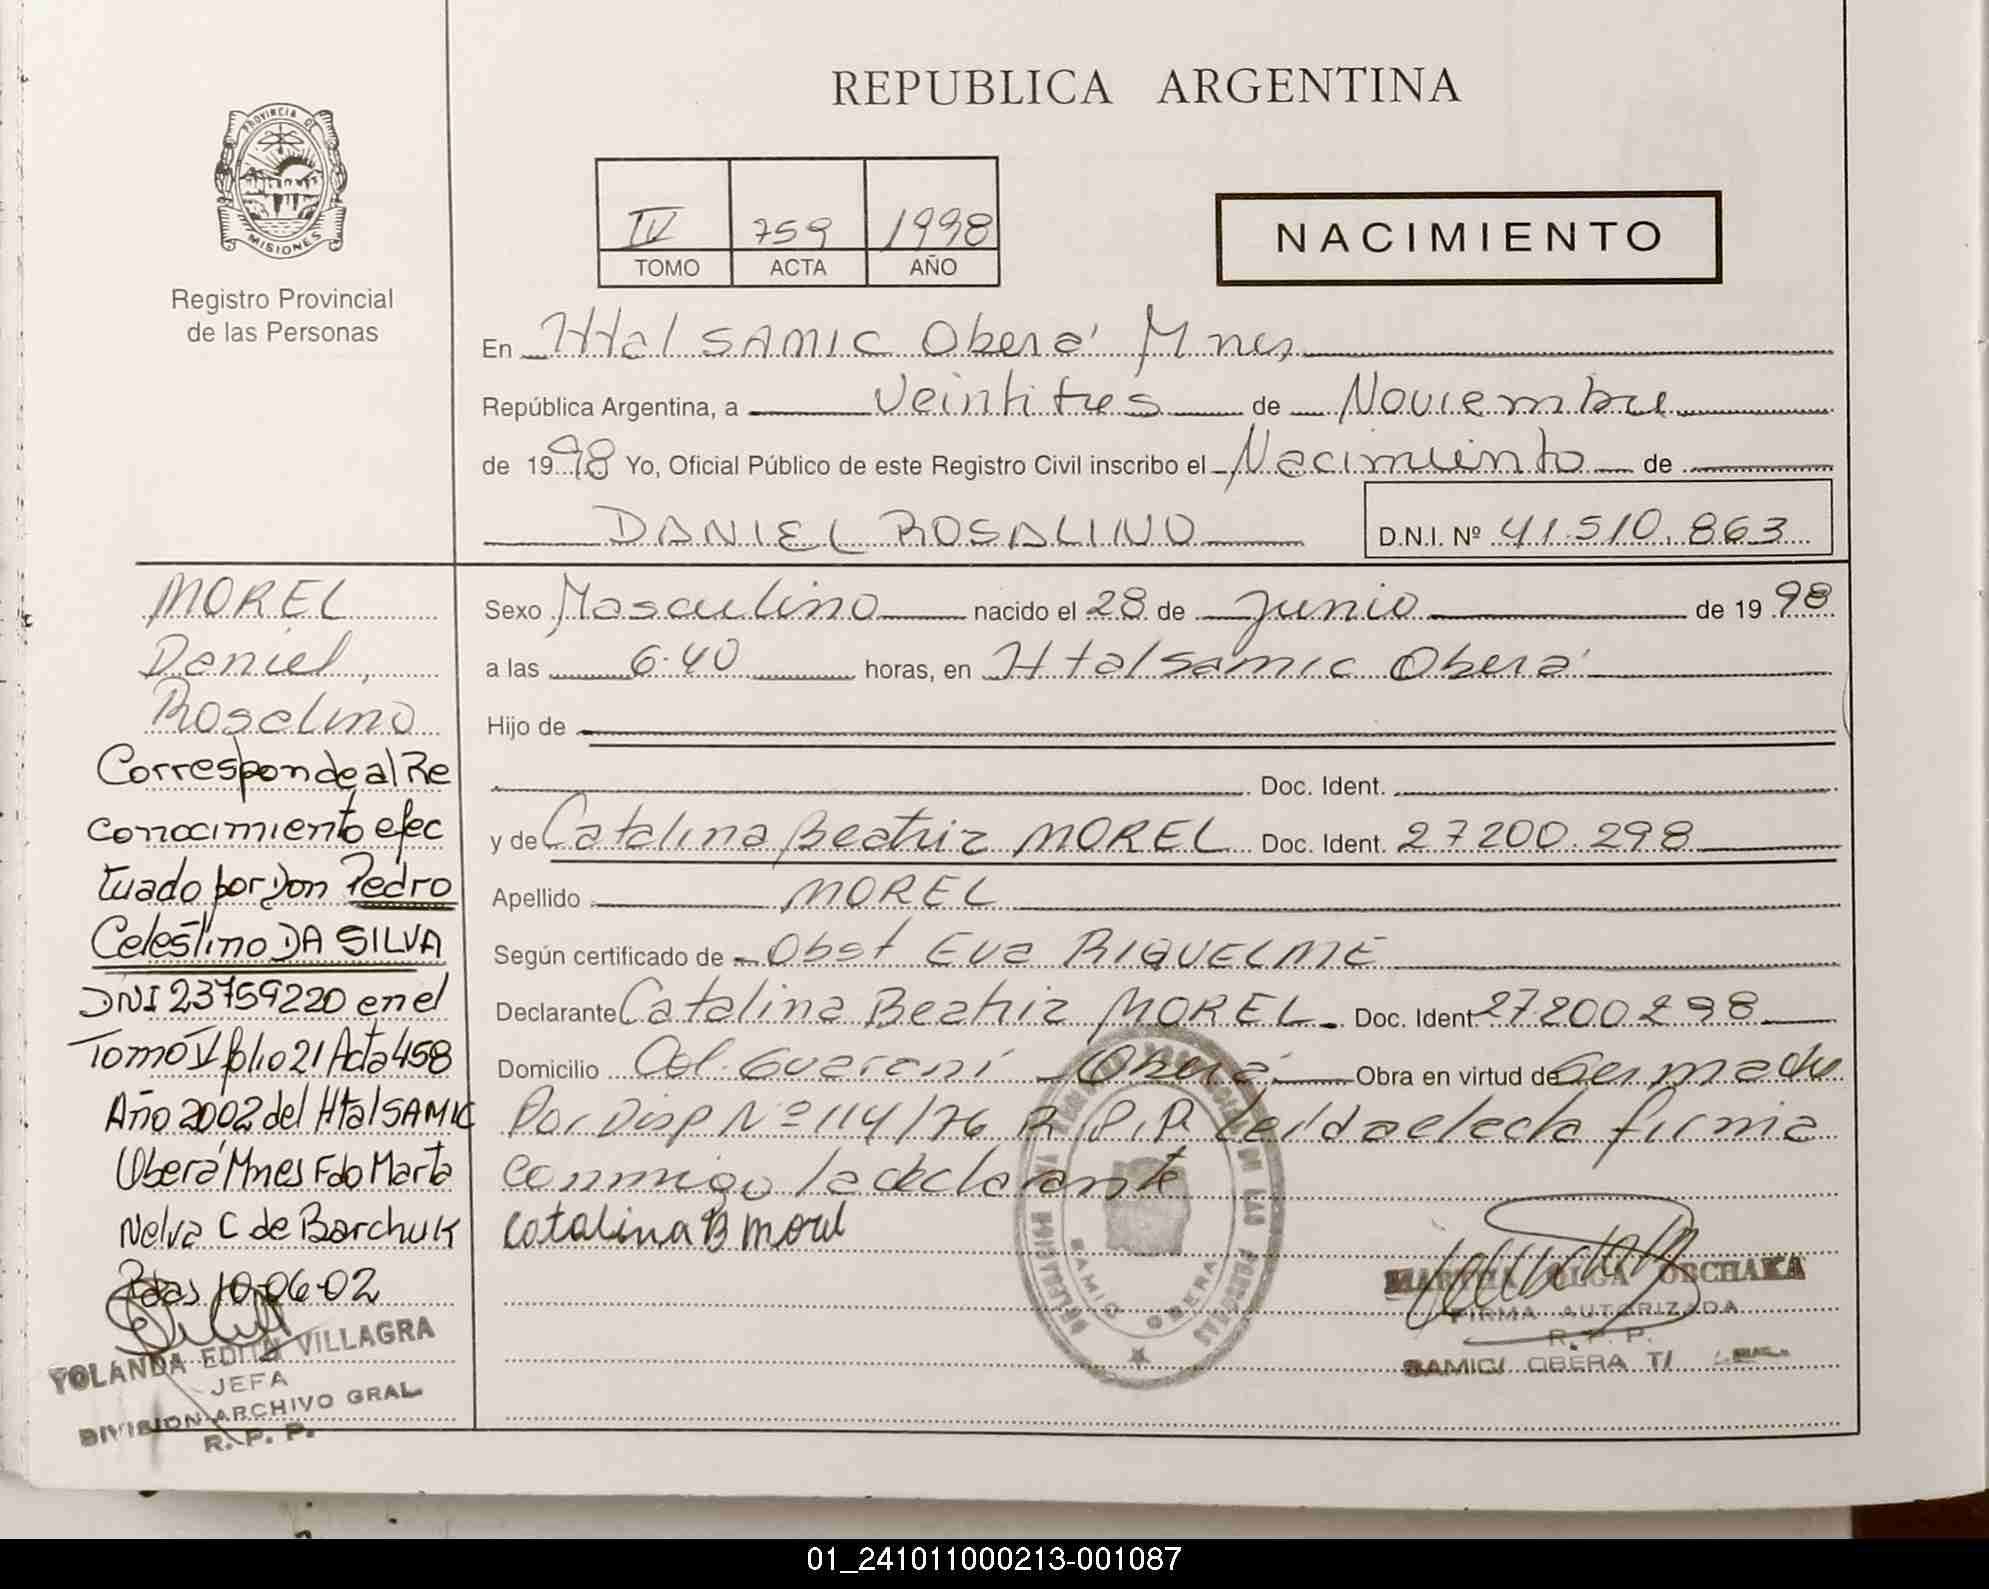 REPUBLICA ARGENTINA
PROVINCIA DE
MISIONES
Registro Provincial
de las Personas
IV 759 1998
TOMO ACTA AÑO
NACIMIENTO
En Htal SAMIC Oberá Mnes
República Argentina, a Veintitres de Noviembre
de 1998 Yo, Oficial Público de este Registro Civil inscribo el Nacimiento de
DANIEL ROSALINO D.N.I. Nº 41.510.863
MOREL
Daniel,
Rosalino
Corresponde al Re
conocimiento efec
tuado por Don Pedro
Celestino DA SILVA
DNI 23759220 en el
Tomo V folio 21 Acta 458
Año 2002 del Htal SAMIC
Oberá Mnes Fdo Marta
Nelva C de Barchuk
Pdas 10-06-02
YOLANDA EDITH VILLAGRA
JEFA
DIVISION ARCHIVO GRAL
R. P. P.
Sexo Masculino nacido el 28 de Junio de 1998
a las 6.40 horas, en Htal samic Oberá
Hijo de
Doc. Ident.
y de Catalina Beatriz MOREL Doc. Ident. 27200.298
Apellido MOREL
Según certificado de Obst Eva RIQUELME
Declarante Catalina Beatriz MOREL Doc. Ident 27200298
Domicilio Col. Guaraní Oberá Obra en virtud de Ser madre
Por Disp Nº 114/76 R.P.P. leída el acta firma
conmigo la declarante
Catalina B Morel
DE LAS PERSONAS
SAMIC OBERA
MARTHA OLGA OBCHAKA
FIRMA AUTORIZADA
R. P. P.
SAMIC/ OBERA
01_241011000213-001087